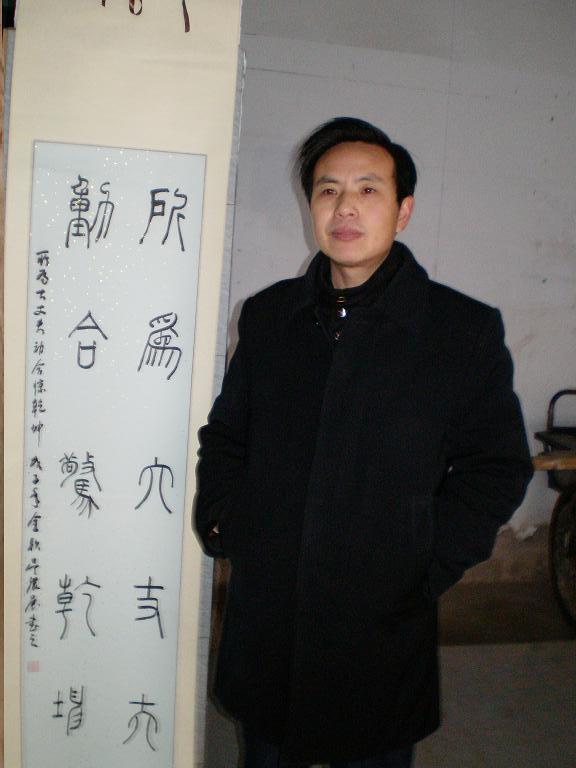 所爲大丈夫
動合驚乾坤
所为大丈夫动合惊乾坤 戊子年金秋 书之